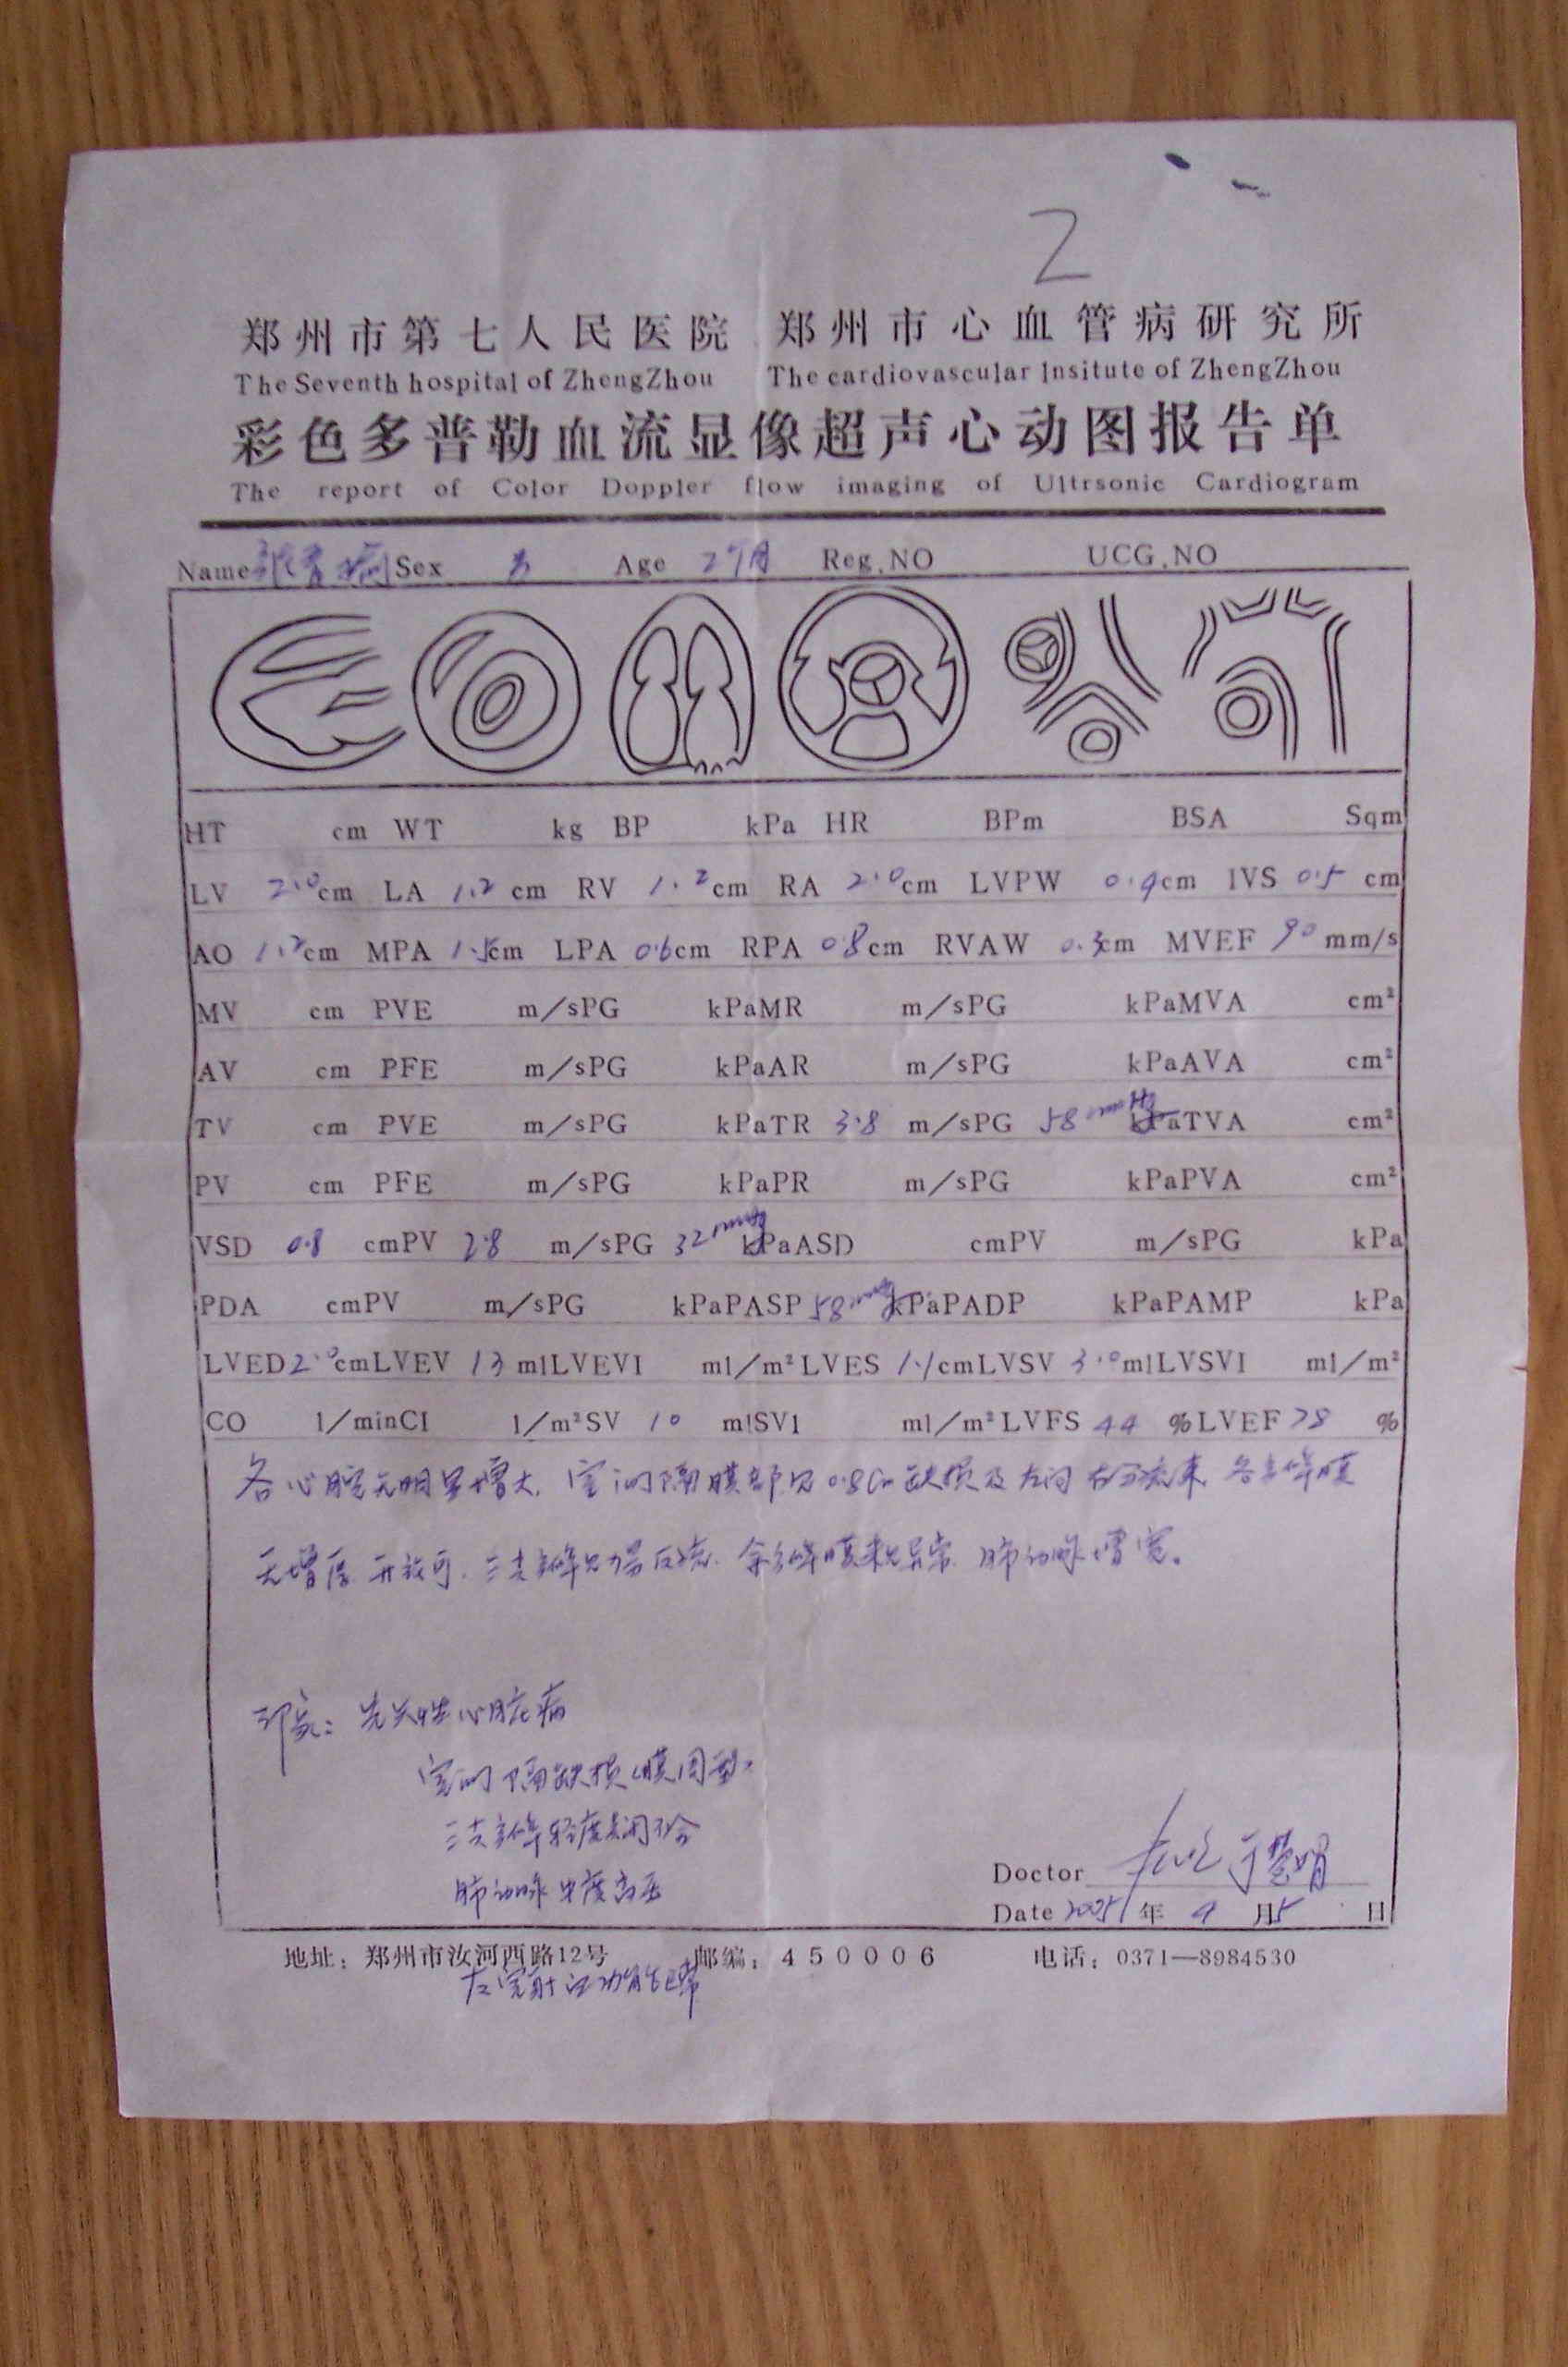 2
郑州市第七人民医院 郑州市心血管病研究所
The Seventh hospital of ZhengZhou The cardiovascular Insitute of ZhengZhou
彩色多普勒血流显像超声心动图报告单
The report of Color Doppler flow imaging of Ultrsonic Cardiogram
Name Sex 男 Age 2个月 Reg.NO UCG.NO
HT cm WT kg BP kPa HR BPm BSA Sqm
LV 2.0cm LA 1.2 cm RV 1.2cm RA 2.0cm LVPW 0.4cm IVS 0.5 cm
AO 1.2cm MPA 1.5cm LPA 0.6cm RPA 0.8cm RVAW 0.3cm MVEF 90 mm/s
MV cm PVE m/sPG kPaMR m/sPG kPaMVA cm²
AV cm PFE m/sPG kPaAR m/sPG kPaAVA cm²
TV cm PVE m/sPG kPaTR 3.8 m/sPG 58mmHg kPaTVA cm²
PV cm PFE m/sPG kPaPR m/sPG kPaPVA cm²
VSD 0.8 cmPV 2.8 m/sPG 32mmHg kPaASD cmPV m/sPG kPa
PDA cmPV m/sPG kPaPASP 58mmHg kPaPADP kPaPAMP kPa
LVED2.0cmLVEV 13 mlLVEVI ml/m²LVES 1.1cmLVSV 3.0mlLVSVI ml/m²
CO l/minCI l/m²SV 10 mlSV1 ml/m²LVFS 44 %LVEF 78 %
各心腔无明显增大,室间隔膜部见0.8Cm缺损及左向右分流束,各瓣膜
无增厚,开放可,三尖瓣见反流,余瓣膜未见异常,肺动脉增宽。
印象:先天性心脏病
室间隔缺损(膜周型)
三尖瓣轻度关闭不全
肺动脉中度高压
Doctor 于慧娟
Date 2005年 4 月5 日
地址:郑州市汝河西路12号 邮编:450006 电话:0371—8984530
左室射血功能正常